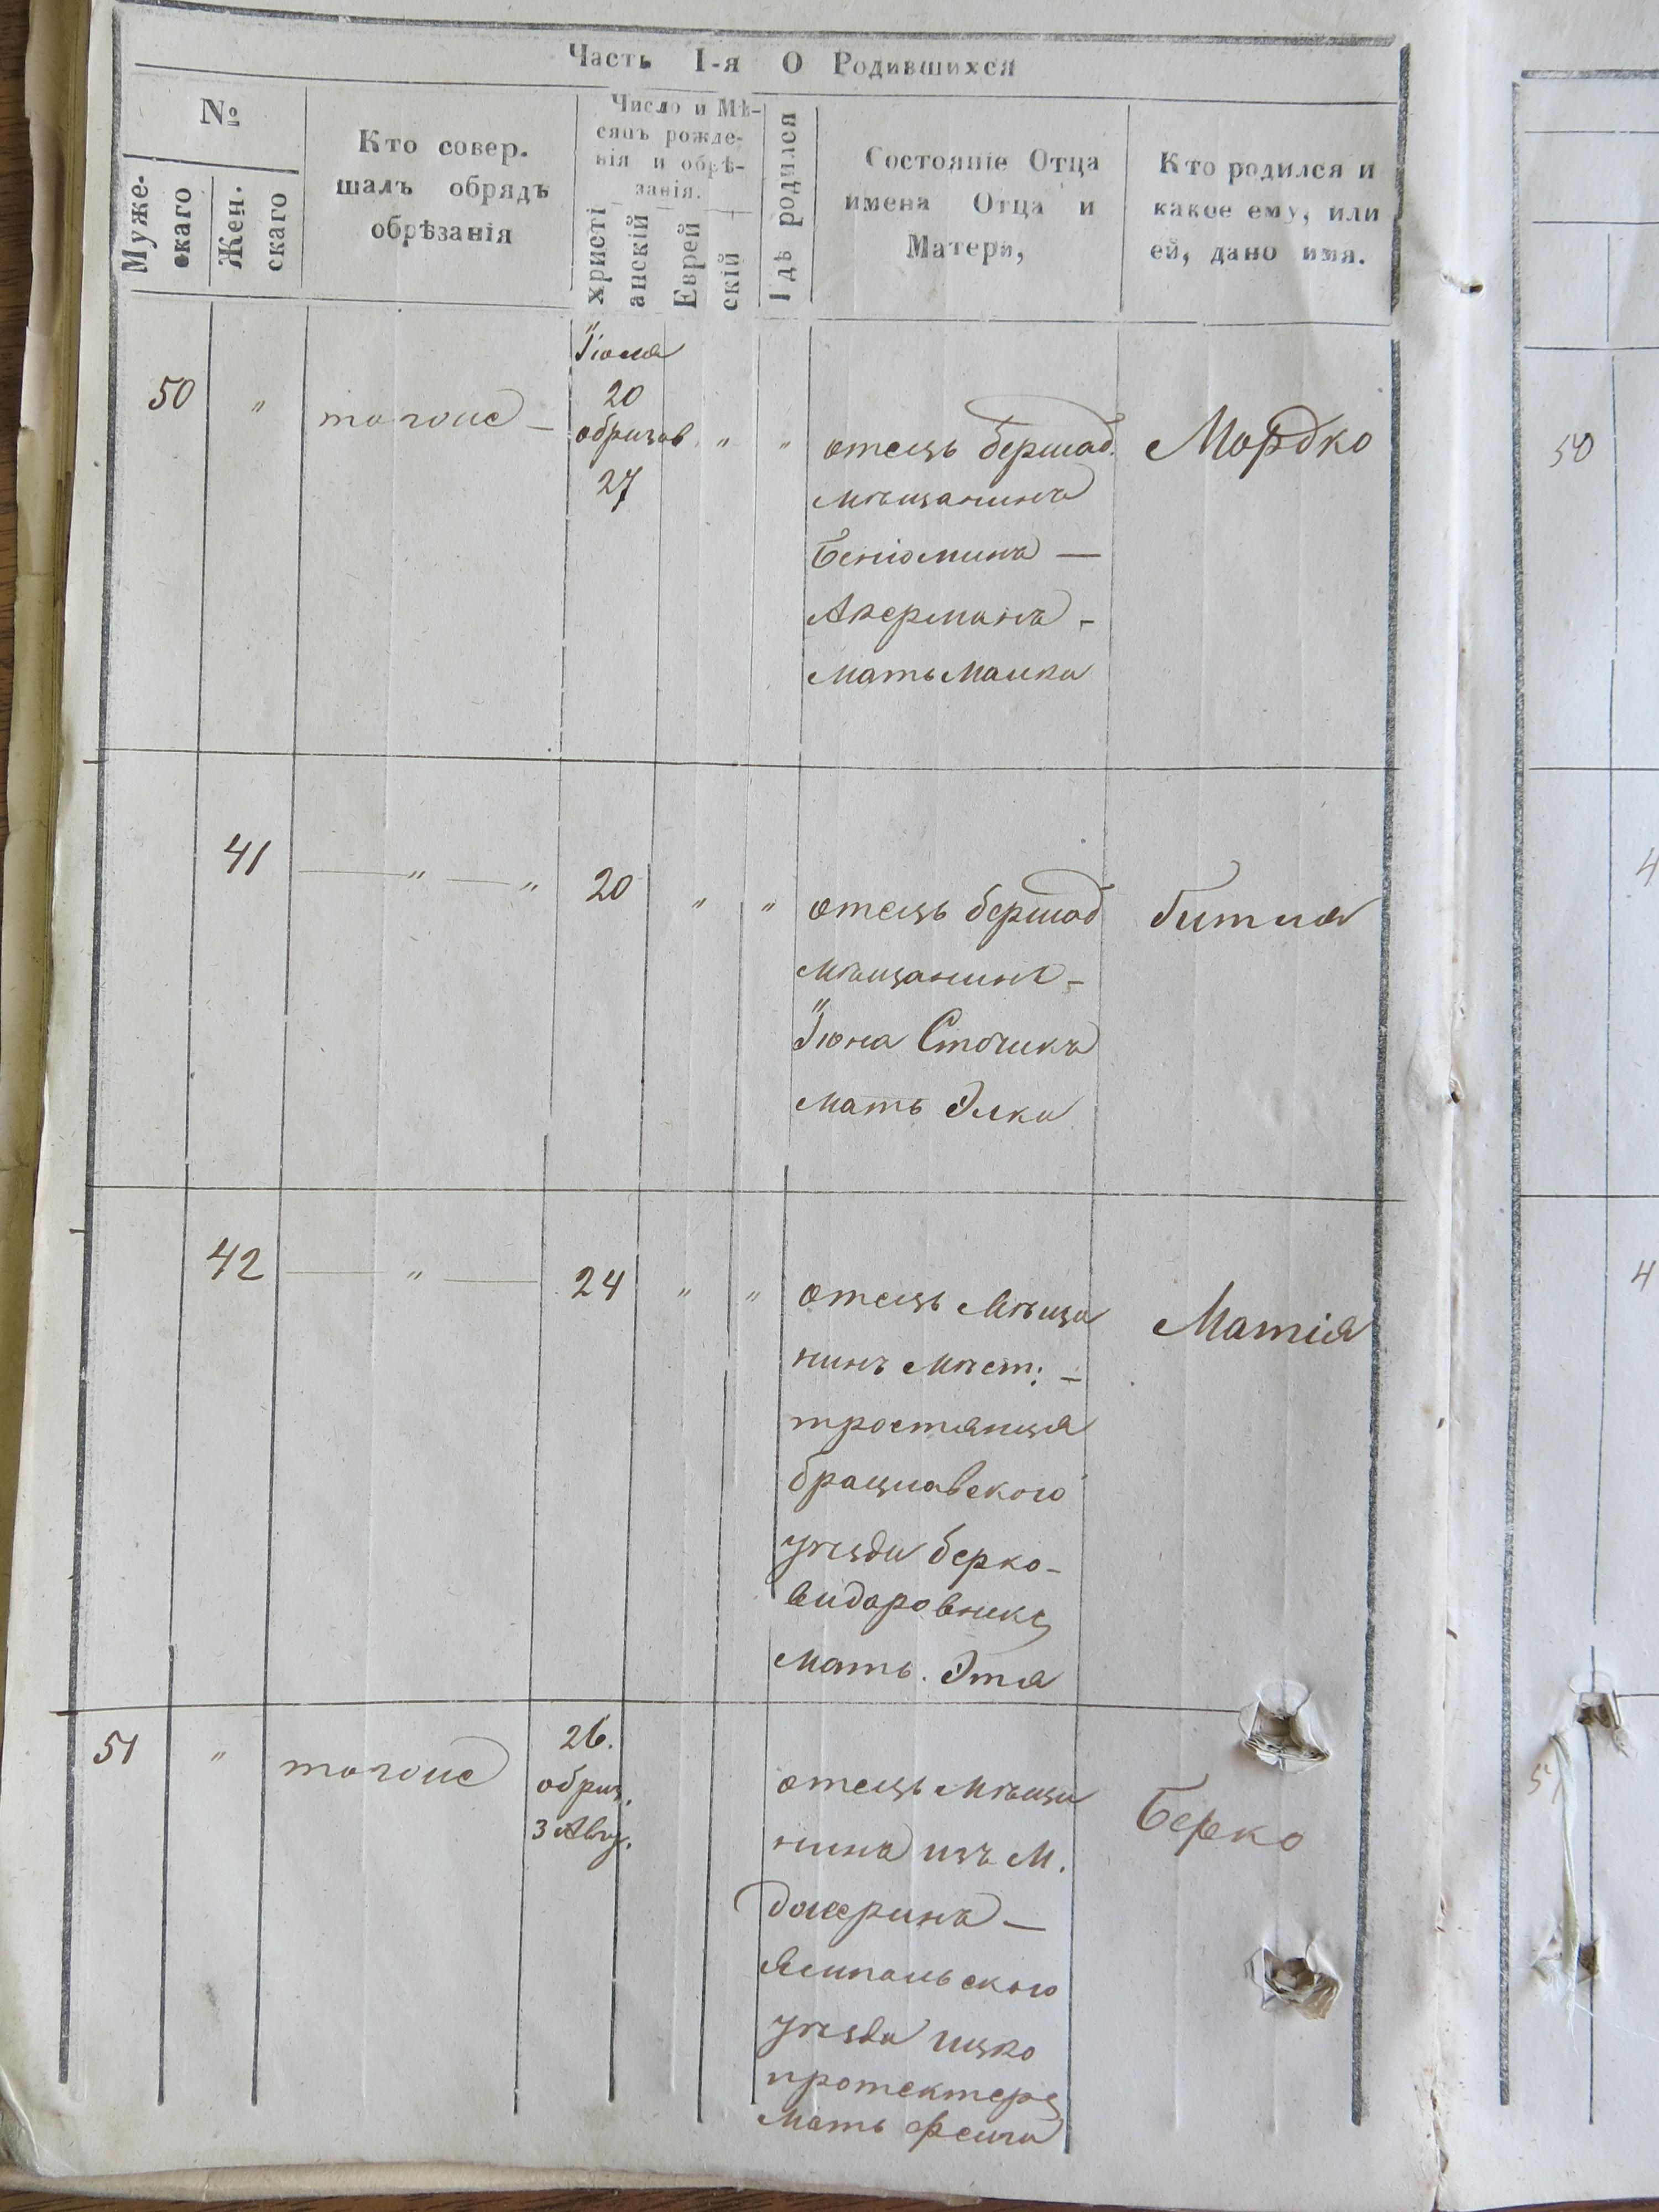 Часть I-я О Родившихся
№
Муже-
скаго
Жен.
скаго
Кто совер.
шалъ обрядъ
обрѣзанія
Число и Мѣ-
сяцъ рожде-
нія и обрѣ-
занія.
христі
анскій
Еврей
скій
Гдѣ родился
Состояніе Отца
имена Отца и
Матери,
Кто родился и
какое ему, или
ей, дано имя.
Іюля
50 " тотоже — 20
обризов " " отецъ бершад. Мордко
27 мѣщанинъ
Беніоминъ —
Акерманъ -
мать Малка
41 — " — " 20 " " отецъ бершад битля
мѣщанинъ -
Іюна Сточикъ
мать Элка
42 — " — 24 " " отецъ мѣща Матія
нинъ мѣст: -
тростянца
брацлавского
уѣзда берко-
видаровникъ
мать. Этя
51 " тотоже 26.
обриз.
3 Авг.
отецъ мѣща Берко
нинъ изъ М.
Ямпольского
уѣзда ицко
протектеръ
мать феига
50
4
4
51